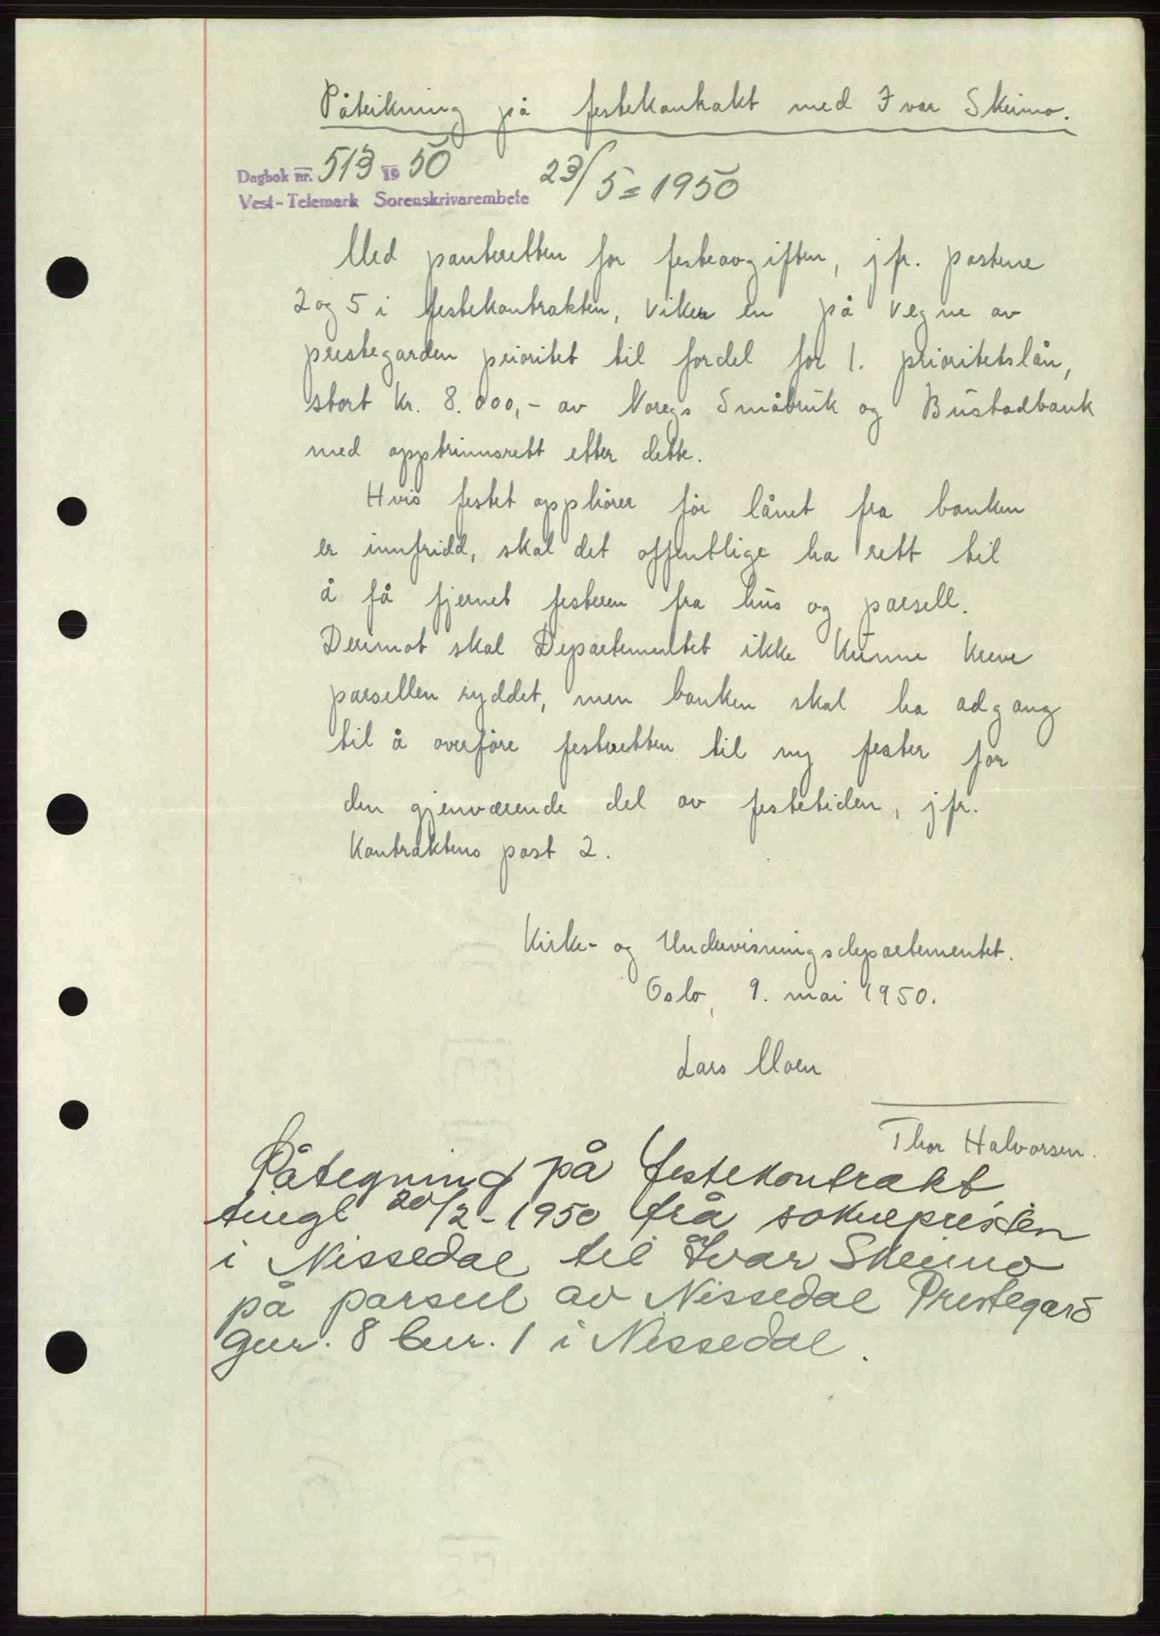 Påteikning på festekontrakt med Ivar Skeimo.
Dagbok nr. 513 19 50 23/5 = 1950
Vest-Telemark Sorenskrivarembete
Med panteretten for festeavgiften, jfr. postene
2 og 5 i festekontrakten, viker en på vegne av
prestegarden prioritet til fordel for 1. prioritetslån,
stort kr. 8.000,- av Noregs Småbruk og Bustadbank
med opptrinnsrett etter dette.
Hvis festet opphører før lånet fra banken
er innfridd, skal det offentlige ha rett til
å få fjernet festeren fra hus og parsell.
Derimot skal Departementet ikke kunne kreve
parsellen ryddet, men banken skal ha adgang
til å overføre festeretten til ny fester for
den gjenværende del av festetiden, jfr.
Kontraktens post 2.
Kirke- og Undervisningsdepartementet.
Oslo, 9. mai 1950.
Lars Moen
Thor Halvorsen.
Påtegning på festekontrakt
tingl 20/2-1950 frå soknepresten
i Nissedal til Ivar Skeimo
på parsell av Nissedal Prestegard
gnr. 8 bnr. 1 i Nissedal.